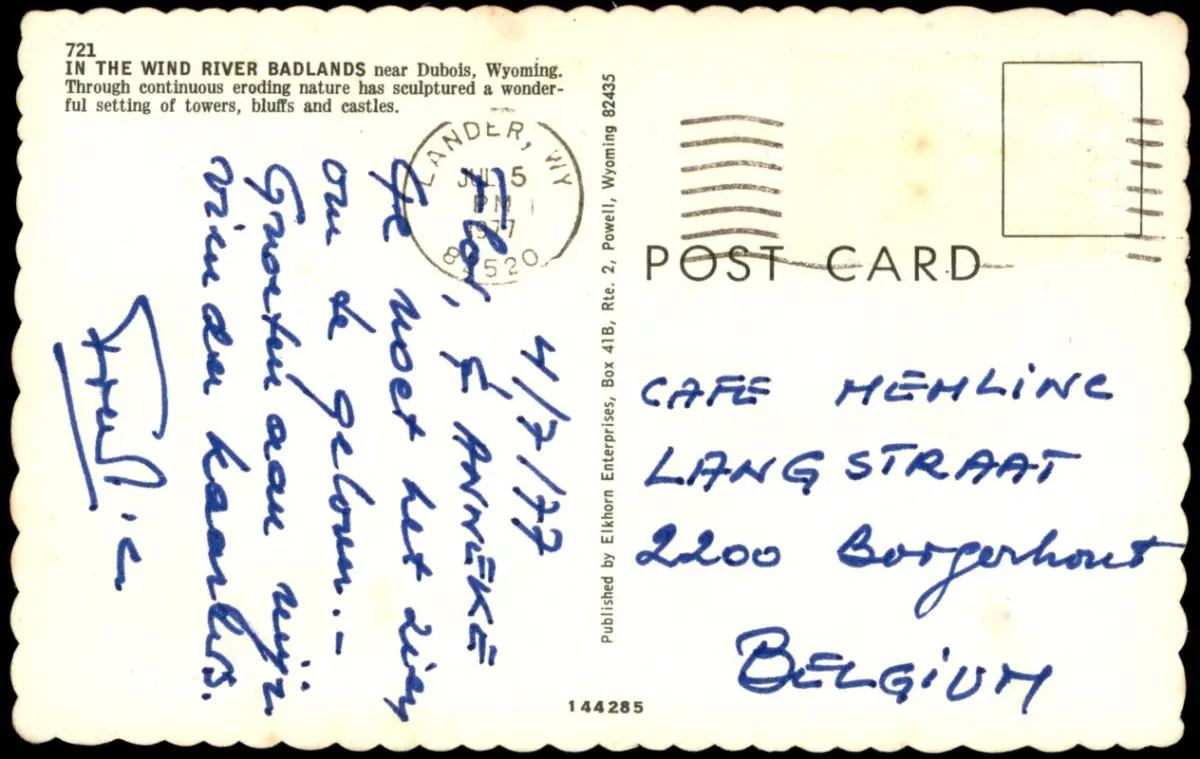 721
IN THE WIND RIVER BADLANDS near Dubois, Wyoming.
Through continuous eroding nature has sculptured a wonder-
ful setting of towers, bluffs and castles.
LANDER, WY
JUL 5
PM
1977
82520
4/7/77
Flor, & ANNEKE
Je moet het zien
om te geloven.-
Groeten aan mijn
vrienden kaarters.
Published by Elkhorn Enterprises, Box 41B, Rte. 2, Powell, Wyoming 82435
POST CARD
CAFE MEMLINC
LANGSTRAAT
2200 Borgerhout
BELGIUM
144285